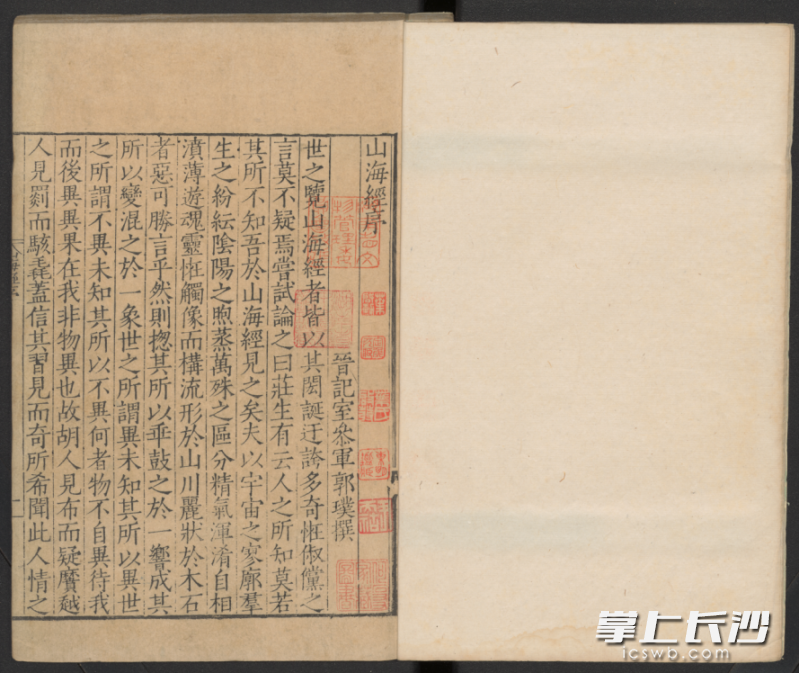 山海經序
晉記室叅軍郭璞撰
世之覽山海經者皆以其閎誕迂誇多奇恠俶儻之
言莫不疑焉嘗試論之曰莊生有云人之所知莫若
其所不知吾於山海經見之矣夫以宇宙之寥廓羣
生之紛紜陰陽之煦蒸萬殊之區分精氣渾淆自相
濆薄遊魂靈恠觸像而構流形於山川麗狀於木石
者惡可勝言乎然則揔其所以乖鼓之於一響成其
所以變混之於一象世之所謂異未知其所以異世
之所謂不異未知其所以不異何者物不自異待我
而後異異果在我非物異也故胡人見布而疑黂越
人見罽而駭毳蓋信其習見而奇所希聞此人情之
掌上长沙
icswb.com